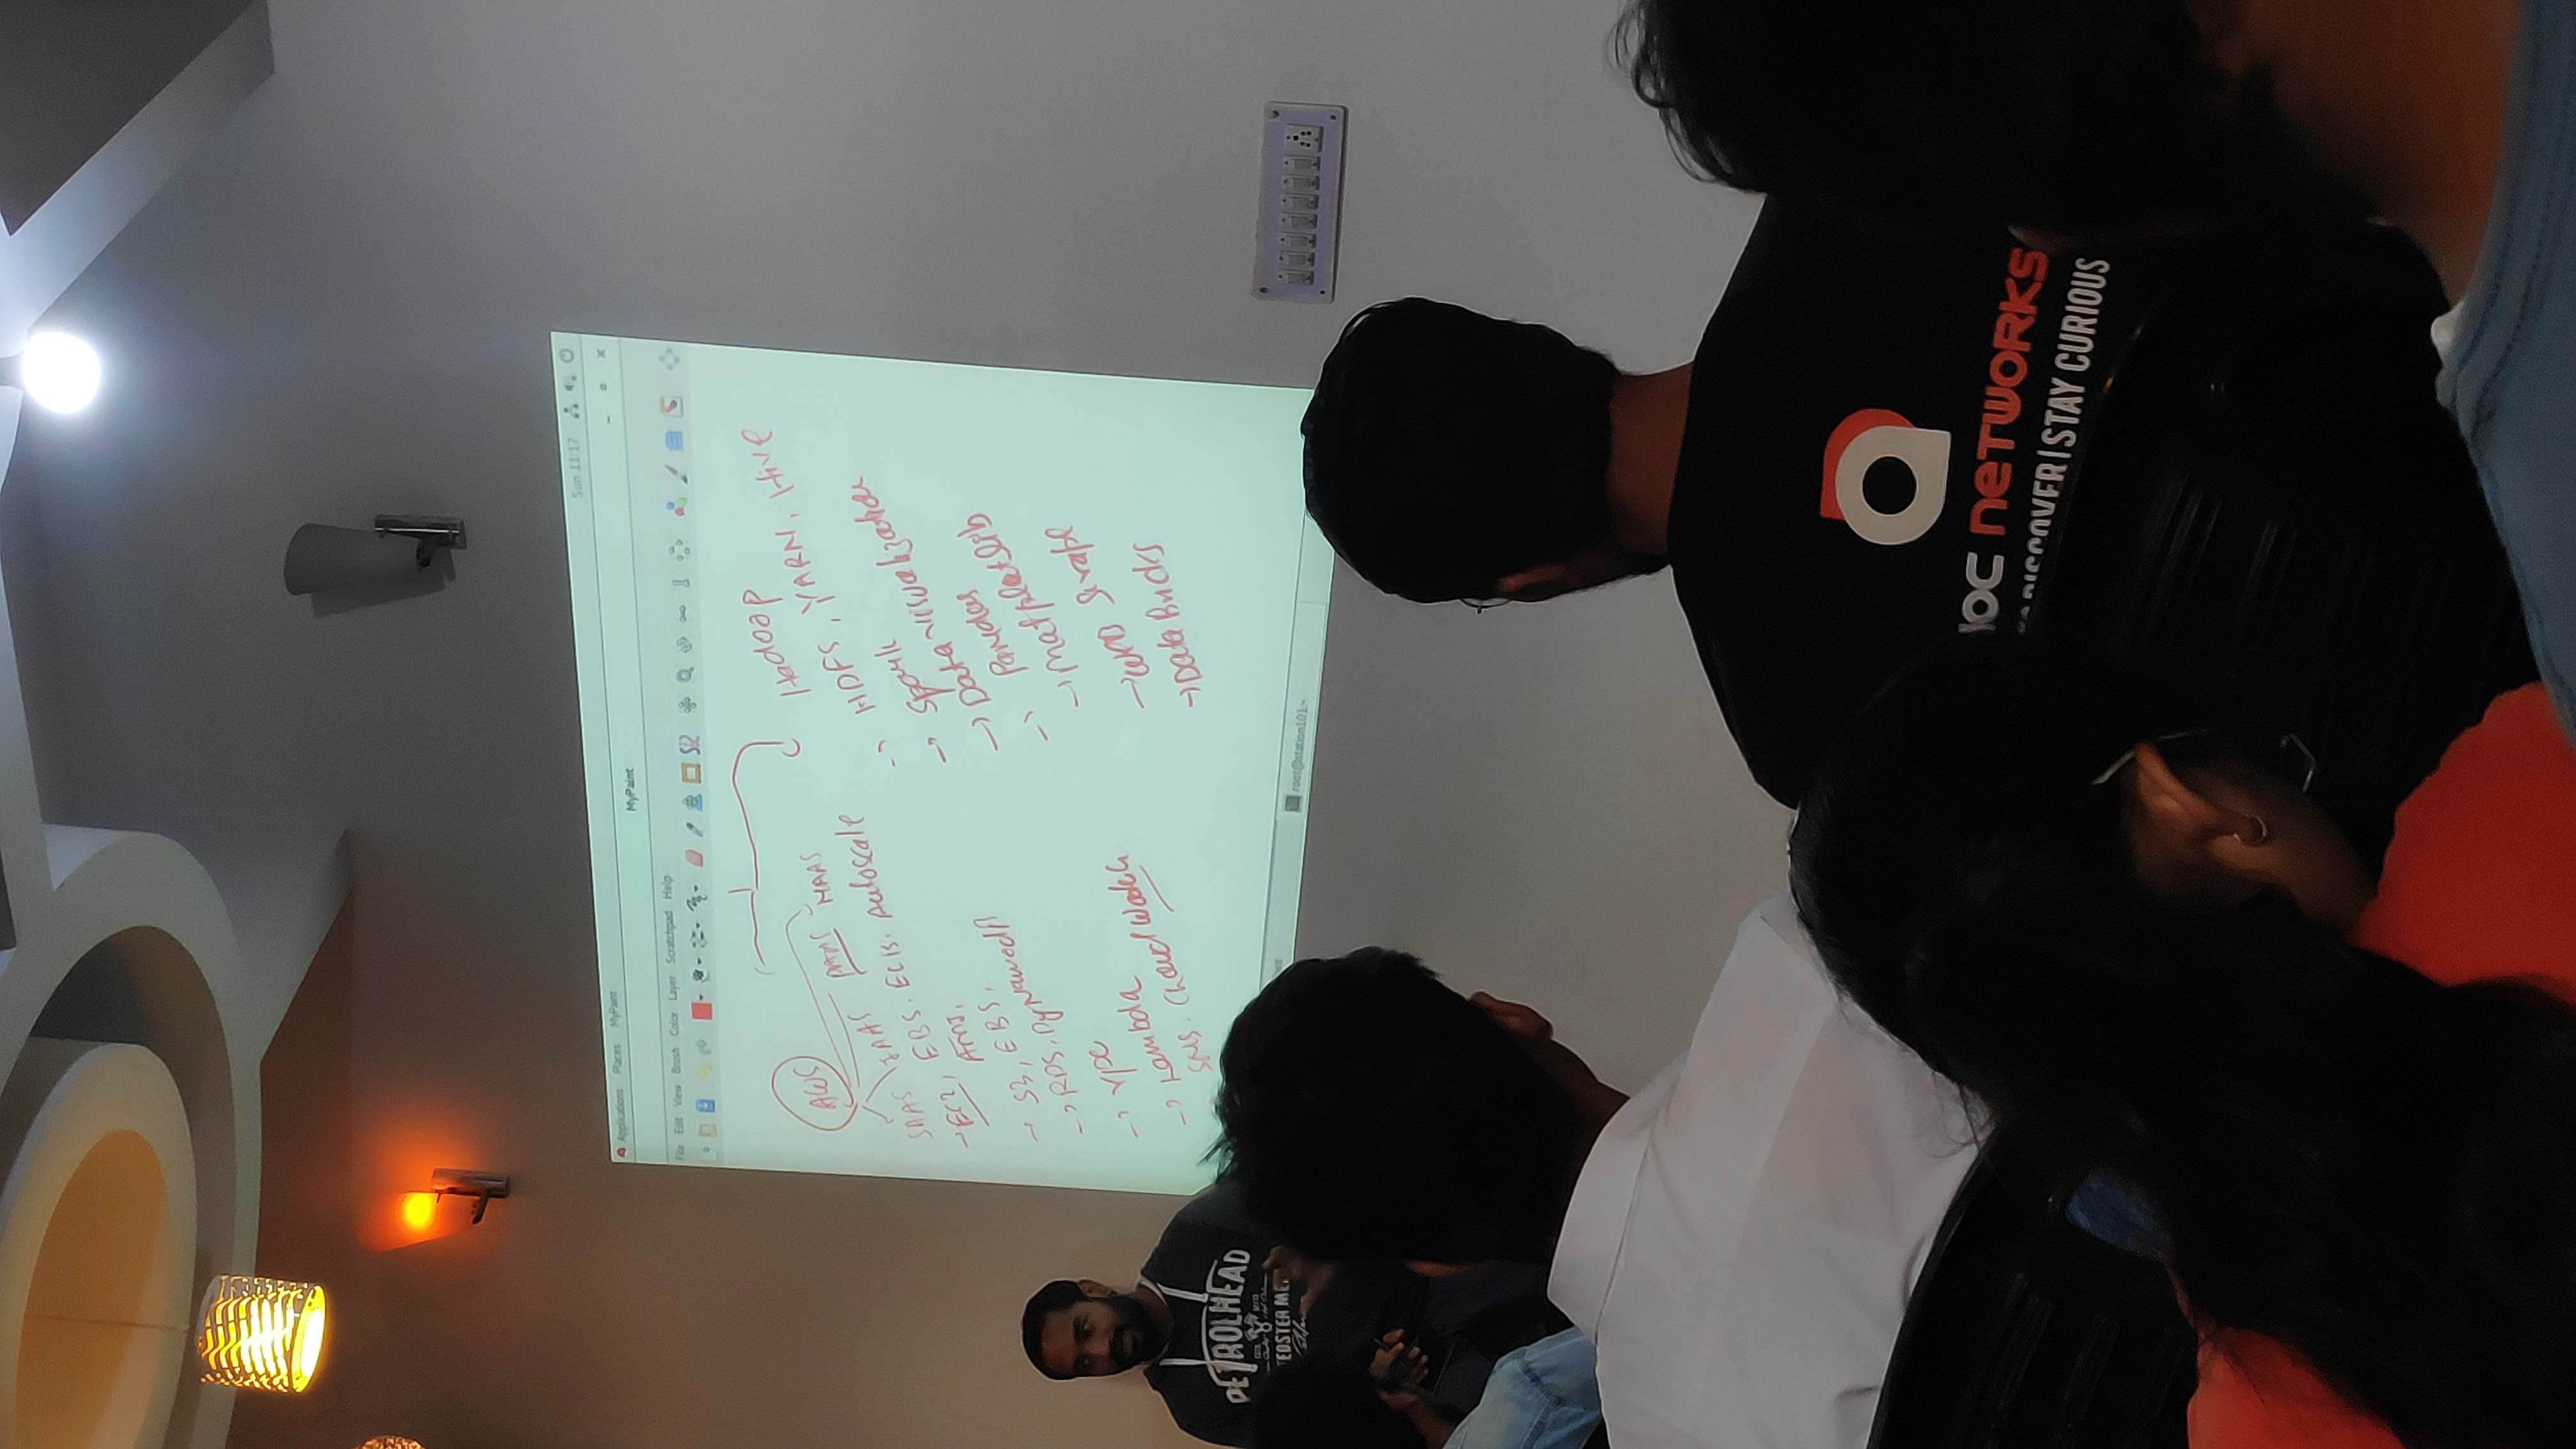 Sun 11:17
Applications Places MyPaint
MyPaint
File Edit View Brush Color Layer Scratchpad Help
AWS
SAAS IAAS PAAS MAAS
→ EC2, EBS. ECIS. Autoscale
AMI,
→ S3, EBS,
→ RDS, DyNamodB
→ vpc
→ Lambda
SNS. Cloud Watch
Hadoop
→ HDFS, YARN, Hive
→ Spark
→ Data visualization
→ Pandas
→ Matplotlib
→ WEB Scrape
→ Data Bricks
root@station101:~
PETROLHEAD
EDSTER ME
HOC NETWORKS
DISCOVER | STAY CURIOUS